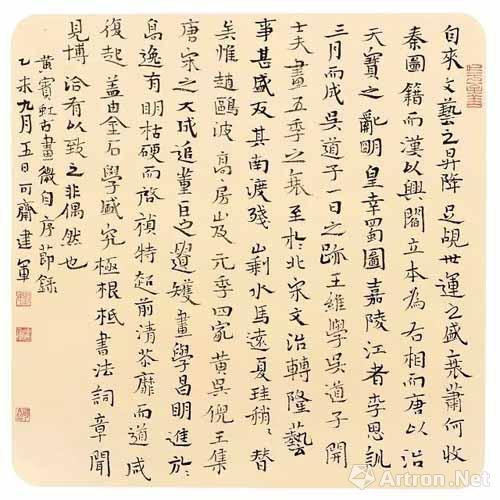 自來文藝之昇降足覘世運之盛衰蕭何收
秦圖籍而漢以興閻立本為右相而唐以治
天寶之亂明皇幸蜀圖嘉陵江者李思訓
三月而成吳道子一日之跡王維學吳道子開
士夫畫五季之衰至於北宋文治轉隆藝
事甚盛及其南渡殘山剩水馬遠夏珪稍〻替
矣惟趙鷗波高房山及元季四家黃吳倪王集
唐宋之大成追董巨之遺矱畫學昌明進於
高逸有明枯硬而啓禎特超前清茶靡而道咸
復起蓋由金石學盛究極根柢書法詞章聞
見博洽有以致之非偶然也
黃賓虹古畫微自序節錄
乙未九月五日可齋建軍
Artron.Net